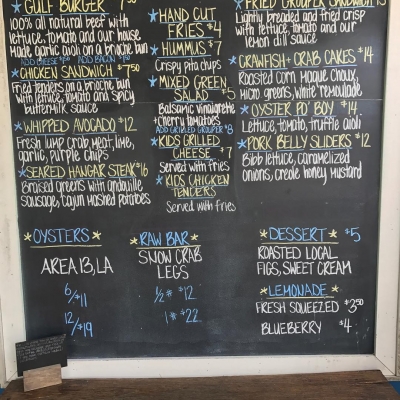 GULF BURGER 7.50
100% all natural beef with
lettuce, tomato and our house
made garlic aioli on a brioche bun
ADD CHEESE ADD BACON
CHICKEN SANDWICH $7.50
Fried tenders on a brioche bun
with lettuce, tomato and spicy
buttermilk sauce
WHIPPED AVOCADO $12
Fresh lump crab meat, lime,
garlic, purple chips
SEARED HANGAR STEAK $16
Braised greens with andouille
sausage, cajun mashed potatoes
HAND CUT
FRIES $4
HUMMUS $7
Crispy pita chips
MIXED GREEN
SALAD $5
Balsamic vinaigrette
cherry tomatoes
ADD GRILLED GROUPER $8
KIDS GRILLED
CHEESE $7
Served with fries
KIDS CHICKEN
TENDERS
Served with fries
FRIED GROUPER SANDWICH
Lightly breaded and fried crisp
with lettuce, tomato and our
lemon dill sauce
CRAWFISH + CRAB CAKES $14
Roasted corn maque choux,
micro greens, white remoulade
OYSTER PO' BOY $14
Lettuce, tomato, truffle aioli
PORK BELLY SLIDERS $12
Bibb lettuce, caramelized
onions, creole honey mustard
OYSTERS
AREA 13, LA
6/$11
12/$19
RAW BAR
SNOW CRAB
LEGS
1/2# $12
1# $22
DESSERT $5
ROASTED LOCAL
FIGS, SWEET CREAM
LEMONADE
FRESH SQUEEZED $3.50
BLUEBERRY $4